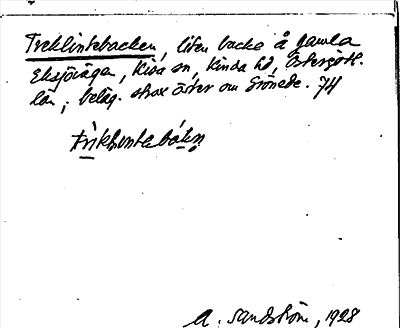 Treklintebacken, liten backe å gamla
Eksjövägen, Kisa sn, Kinda hd, Östergötl.
län; beläg. strax öster om Grönede. 74
A. Sandström, 1928